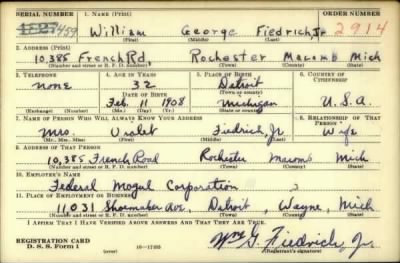 SERIAL NUMBER 1. NAME (Print) ORDER NUMBER
459 William George Fiedrich, Jr 2914
(First) (Middle) (Last)
2. ADDRESS (Print)
10,385 French Rd, Rochester Macomb Mich
(Number and street or R. F. D. number) (Town) (County) (State)
3. TELEPHONE 4. AGE IN YEARS 5. PLACE OF BIRTH 6. COUNTRY OF CITIZENSHIP
none 32 Detroit
(Town or county)
DATE OF BIRTH
Feb. 11 1908 Michigan U.S.A.
(Exchange) (Number) (Mo.) (Day) (Yr.) (State or country)
7. NAME OF PERSON WHO WILL ALWAYS KNOW YOUR ADDRESS 8. RELATIONSHIP OF THAT PERSON
Mrs Violet Fiedrich, Jr Wife
(Mr., Mrs., Miss) (First) (Middle) (Last)
9. ADDRESS OF THAT PERSON
10,385 French Road Rochester Macomb Mich
(Number and street or R. F. D. number) (Town) (County) (State)
10. EMPLOYER'S NAME
Federal Mogul Corporation
11. PLACE OF EMPLOYMENT OR BUSINESS
11031 Shoemaker Ave, Detroit, Wayne, Mich
(Number and street or R. F. D. number) (Town) (County) (State)
I AFFIRM THAT I HAVE VERIFIED ABOVE ANSWERS AND THAT THEY ARE TRUE.
REGISTRATION CARD
D. S. S. Form 1 16—17105 Wm G. Fiedrich, Jr.
(Registrant's signature)